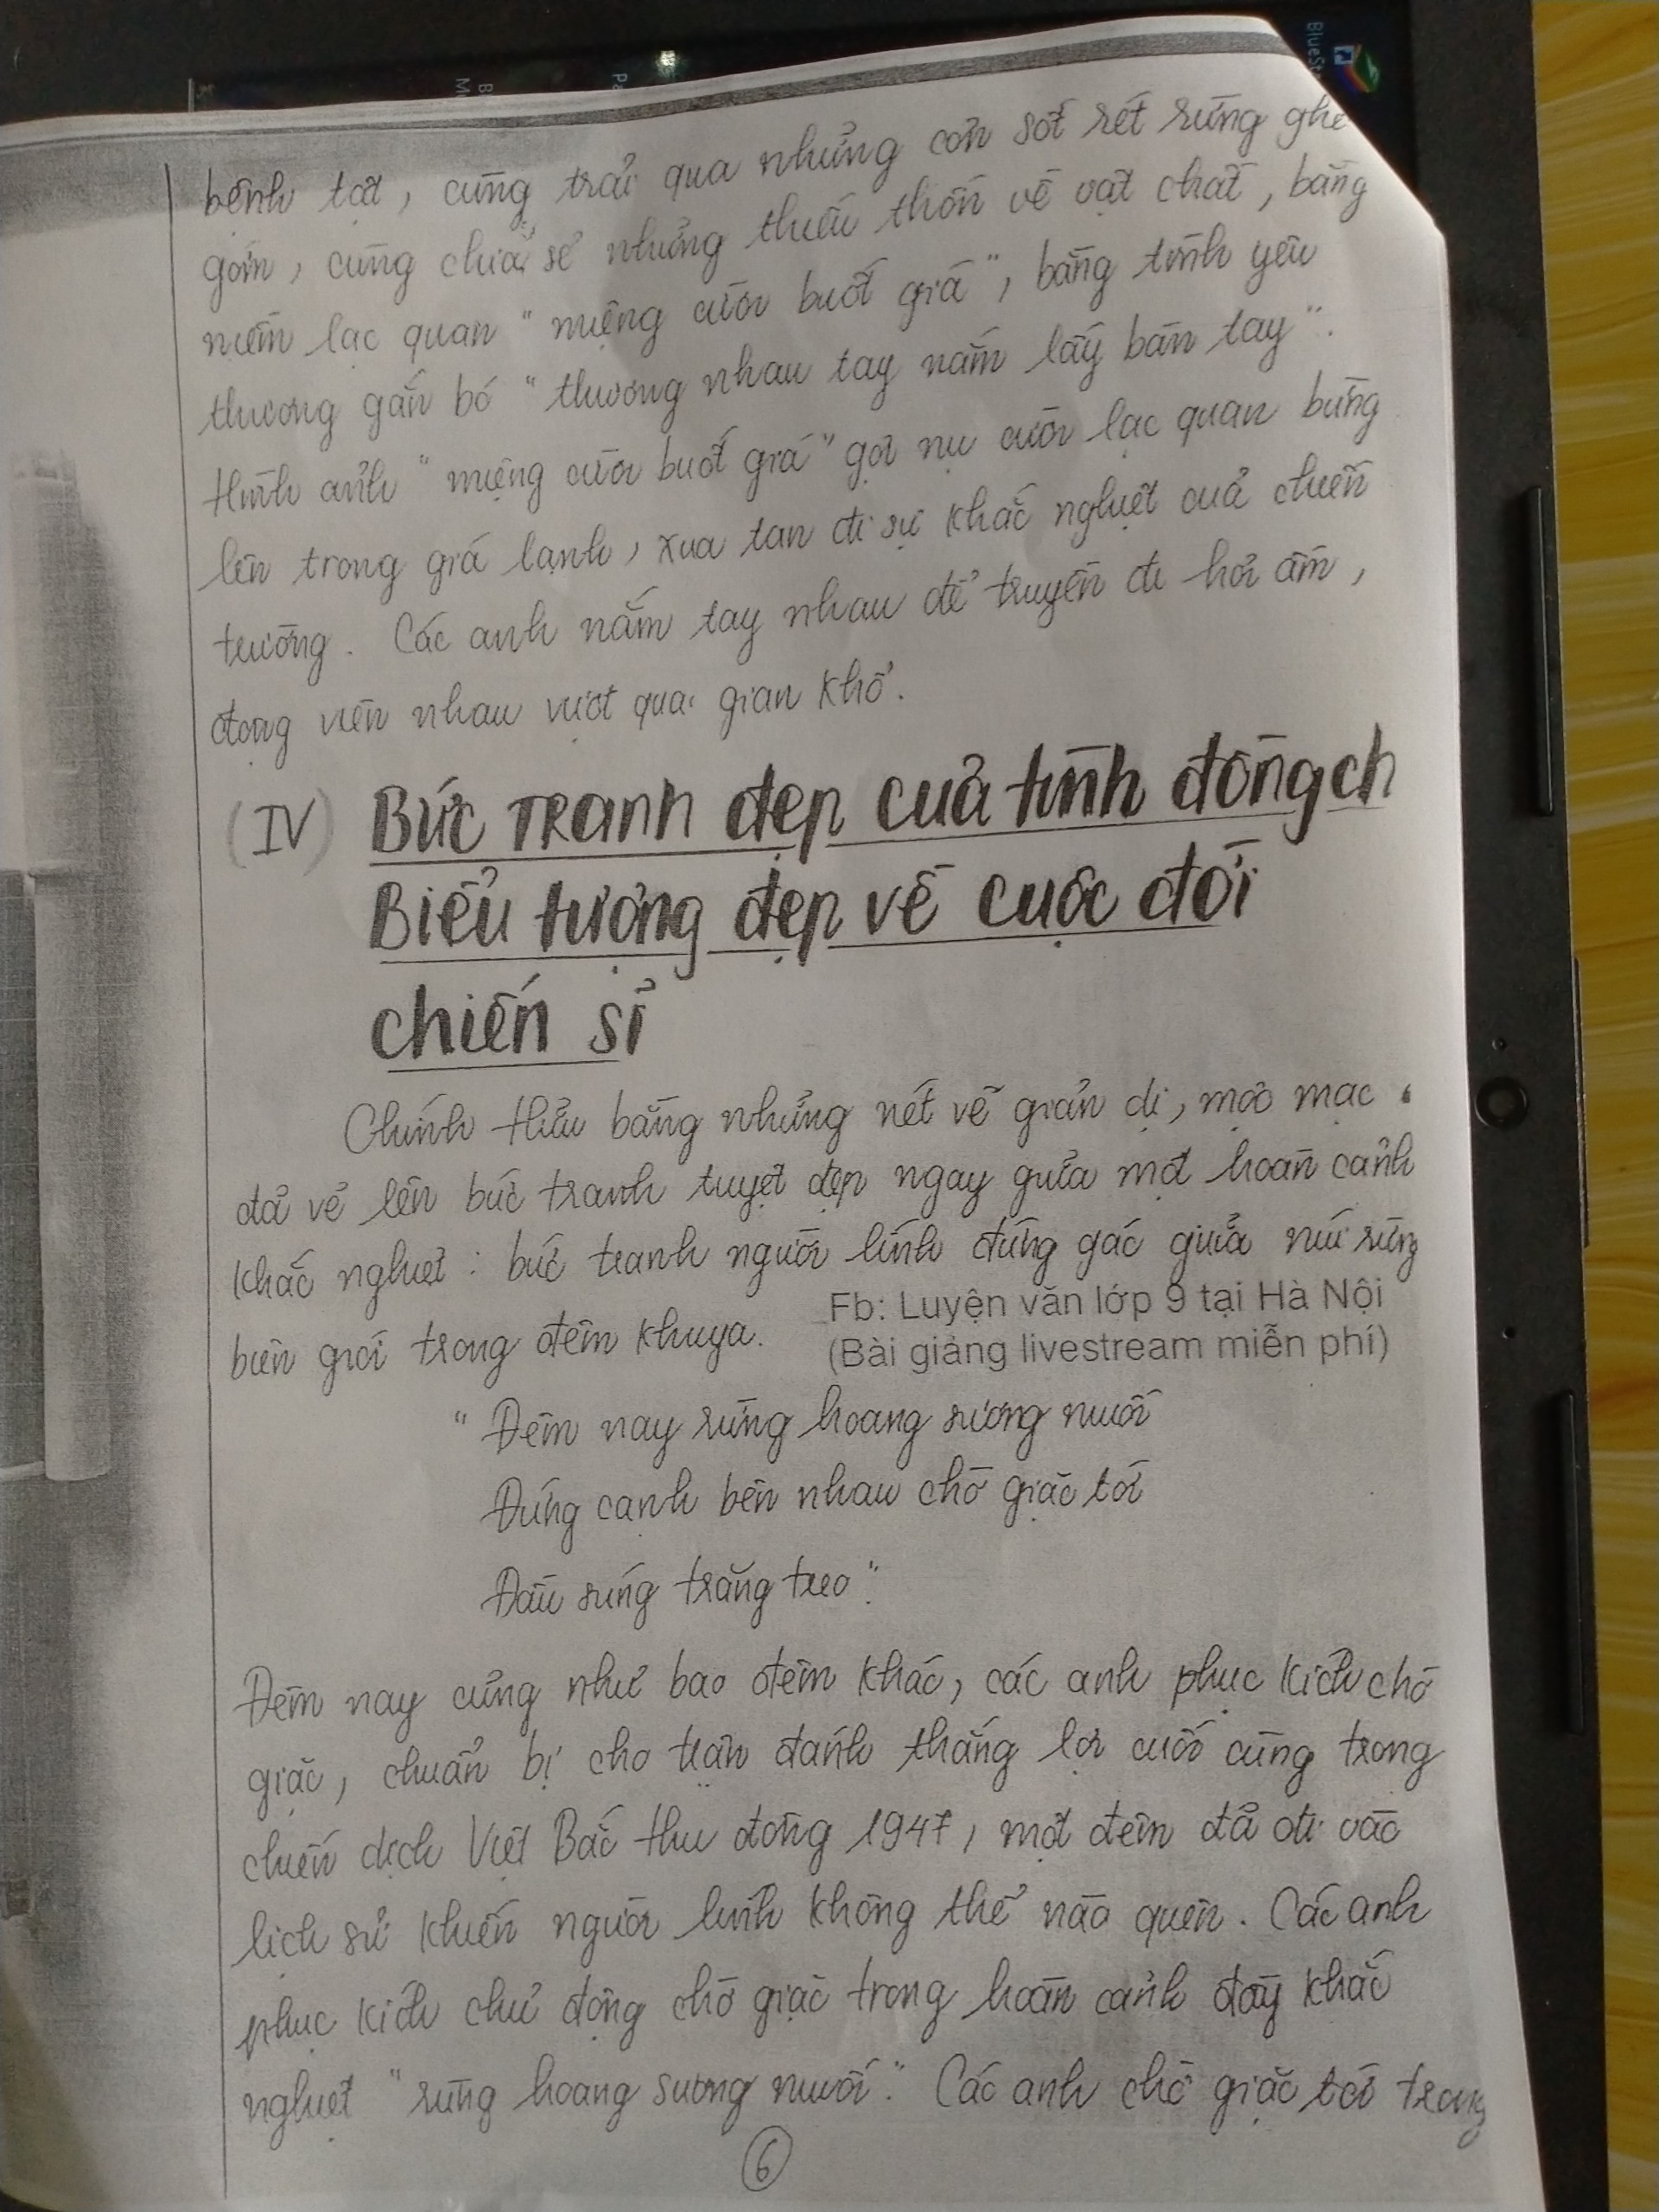 bệnh tật, cùng trải qua những cơn sốt rét rừng ghê
gớm, cùng chia sẻ những thiếu thốn về vật chất, bằng
niềm lạc quan "miệng cười buốt giá", bằng tình yêu
thương gắn bó "thương nhau tay nắm lấy bàn tay".
Hình ảnh "miệng cười buốt giá" gợi nụ cười lạc quan bừng
lên trong giá lạnh, xua tan đi sự khắc nghiệt của chiến
trường. Các anh nắm tay nhau để truyền đi hơi ấm,
động viên nhau vượt qua gian khổ.
(IV) Bức tranh đẹp của tình đồng ch
Biểu tượng đẹp về cuộc đời
chiến sĩ
Chính Hữu bằng những nét vẽ giản dị, mộc mạc
đã vẽ lên bức tranh tuyệt đẹp ngay giữa một hoàn cảnh
khắc nghiệt: bức tranh người lính đứng gác giữa núi rừng
biên giới trong đêm khuya.
Fb: Luyện văn lớp 9 tại Hà Nội
(Bài giảng livestream miễn phí)
"Đêm nay rừng hoang sương muối
Đứng cạnh bên nhau chờ giặc tới
Đầu súng trăng treo".
Đêm nay cũng như bao đêm khác, các anh phục kích chờ
giặc, chuẩn bị cho trận đánh thắng lợi cuối cùng trong
chiến dịch Việt Bắc thu đông 1947, một đêm đã đi vào
lịch sử khiến người lính không thể nào quên. Các anh
phục kích chủ động chờ giặc trong hoàn cảnh đầy khắc
nghiệt "rừng hoang sương muối". Các anh chờ giặc tới trong
6